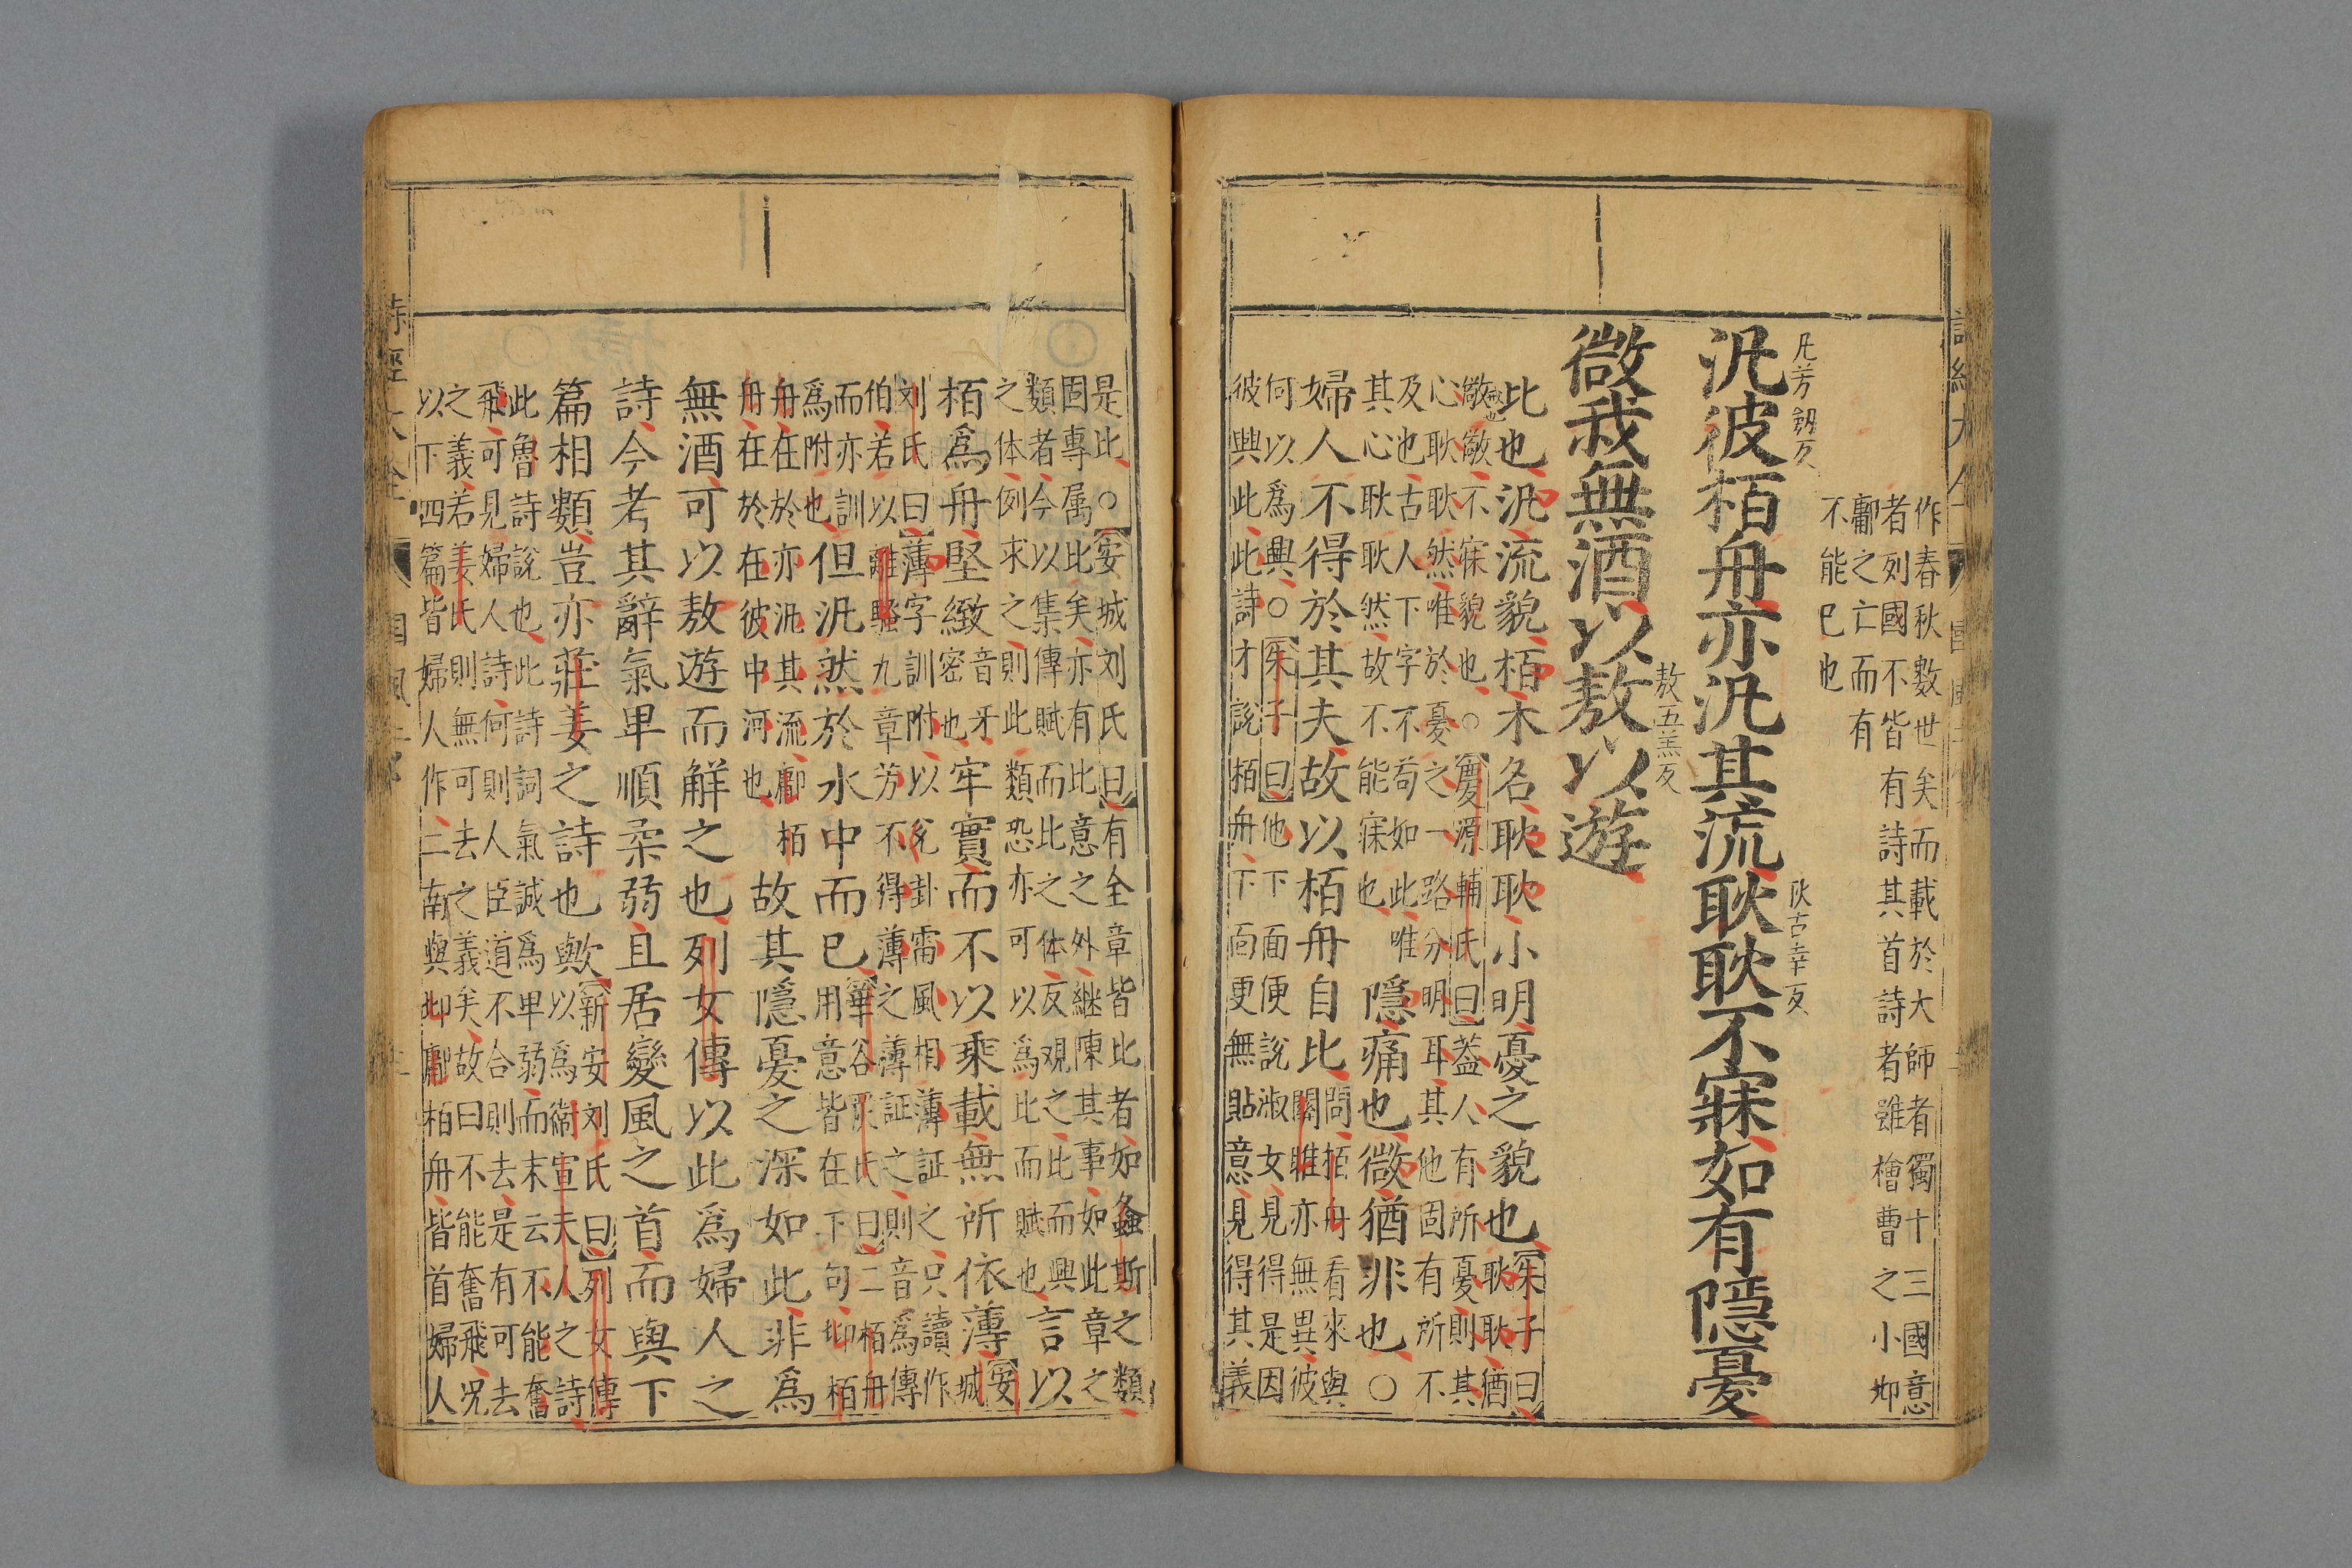 作春秋數世矣而載於大師者獨十三國意
者列國不皆有詩其首詩者雖檜曹之小邶
鄘之亡而有
不能已也
汎彼柏舟亦汎其流耿耿不寐如有隱憂
微我無酒以敖以遊
比也汎流貌栢木名耿耿小明憂之貌也
朱子曰
耿耿猶
儆儆不寐貌也○慶源輔氏曰蓋人有所憂則其
心耿耿然唯於憂之一路分明耳其他固有所不
及也古人下字不苟如此唯
其心耿耿然故不能寐也
隱痛也微猶非也○
婦人不得於其夫故以栢舟自比
問栢舟看來與
關雎亦無異彼
何以爲興○朱子曰他下面便說淑女見得是因
彼興此此詩才說栢舟下面更無貼意見得其義
是比○安城刘氏曰有全章皆比者如螽斯之類
固專属比矣亦有比意之外継陳其事如此章之
類者今以集傳賦而比之体反观之此而興
之体例求之則此類恐亦可以爲比而賦也
言以
栢爲舟堅緻
音牙
密也
牢實而不以乘載無所依薄
安
城
刘氏曰薄字訓附以兊卦雷風相薄証之只讀作
伯若以離騷九章芳不得薄之薄証之則音爲傳
而亦訓
爲附也
但汎然於水中而已
華谷嚴氏曰二栢舟
用意皆在下句邶栢
舟在於亦汎其流鄘栢
舟在於在彼中河也
故其隱憂之深如此非爲
無酒可以敖遊而解之也列女傳以此爲婦人之
詩今考其辭氣卑順柔弱且居變風之首而與下
篇相類豈亦莊姜之詩也歟
新安刘氏曰列女傳
以爲衛宣夫人之詩
此魯詩說也此詩詞氣誠爲卑弱而末云不能奮
飛可見婦人詩何則人臣道不合則去是有可去
之義若姜氏則無可去之義矣故曰不能奮飛况
以下四篇皆婦人作二南與邶鄘栢舟皆首婦人